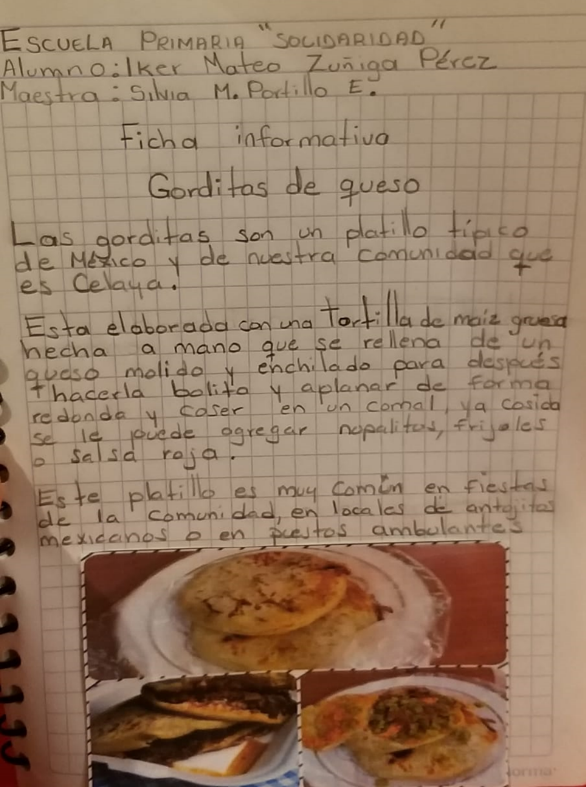 ESCUELA PRIMARIA "SOLIDARIDAD"
Alumno: Iker Mateo Zuñiga Pérez
Maestra: Silvia M. Portillo E.
Ficha informativa
Gorditas de queso
Las gorditas son un platillo típico
de México y de nuestra comunidad que
es Celaya.
Esta elaborada con una Tortilla de maiz gruesa
hecha a mano que se rellena de un
queso molido y enchilado para después
hacerla bolita y aplanar de forma
redonda y coser en un comal, ya cosida
se le puede agregar nopalitos, frijoles
o salsa roja.
Este platillo es muy común en fiestas
de la comunidad, en locales de antojitos
mexicanos o en puestos ambulantes
norma